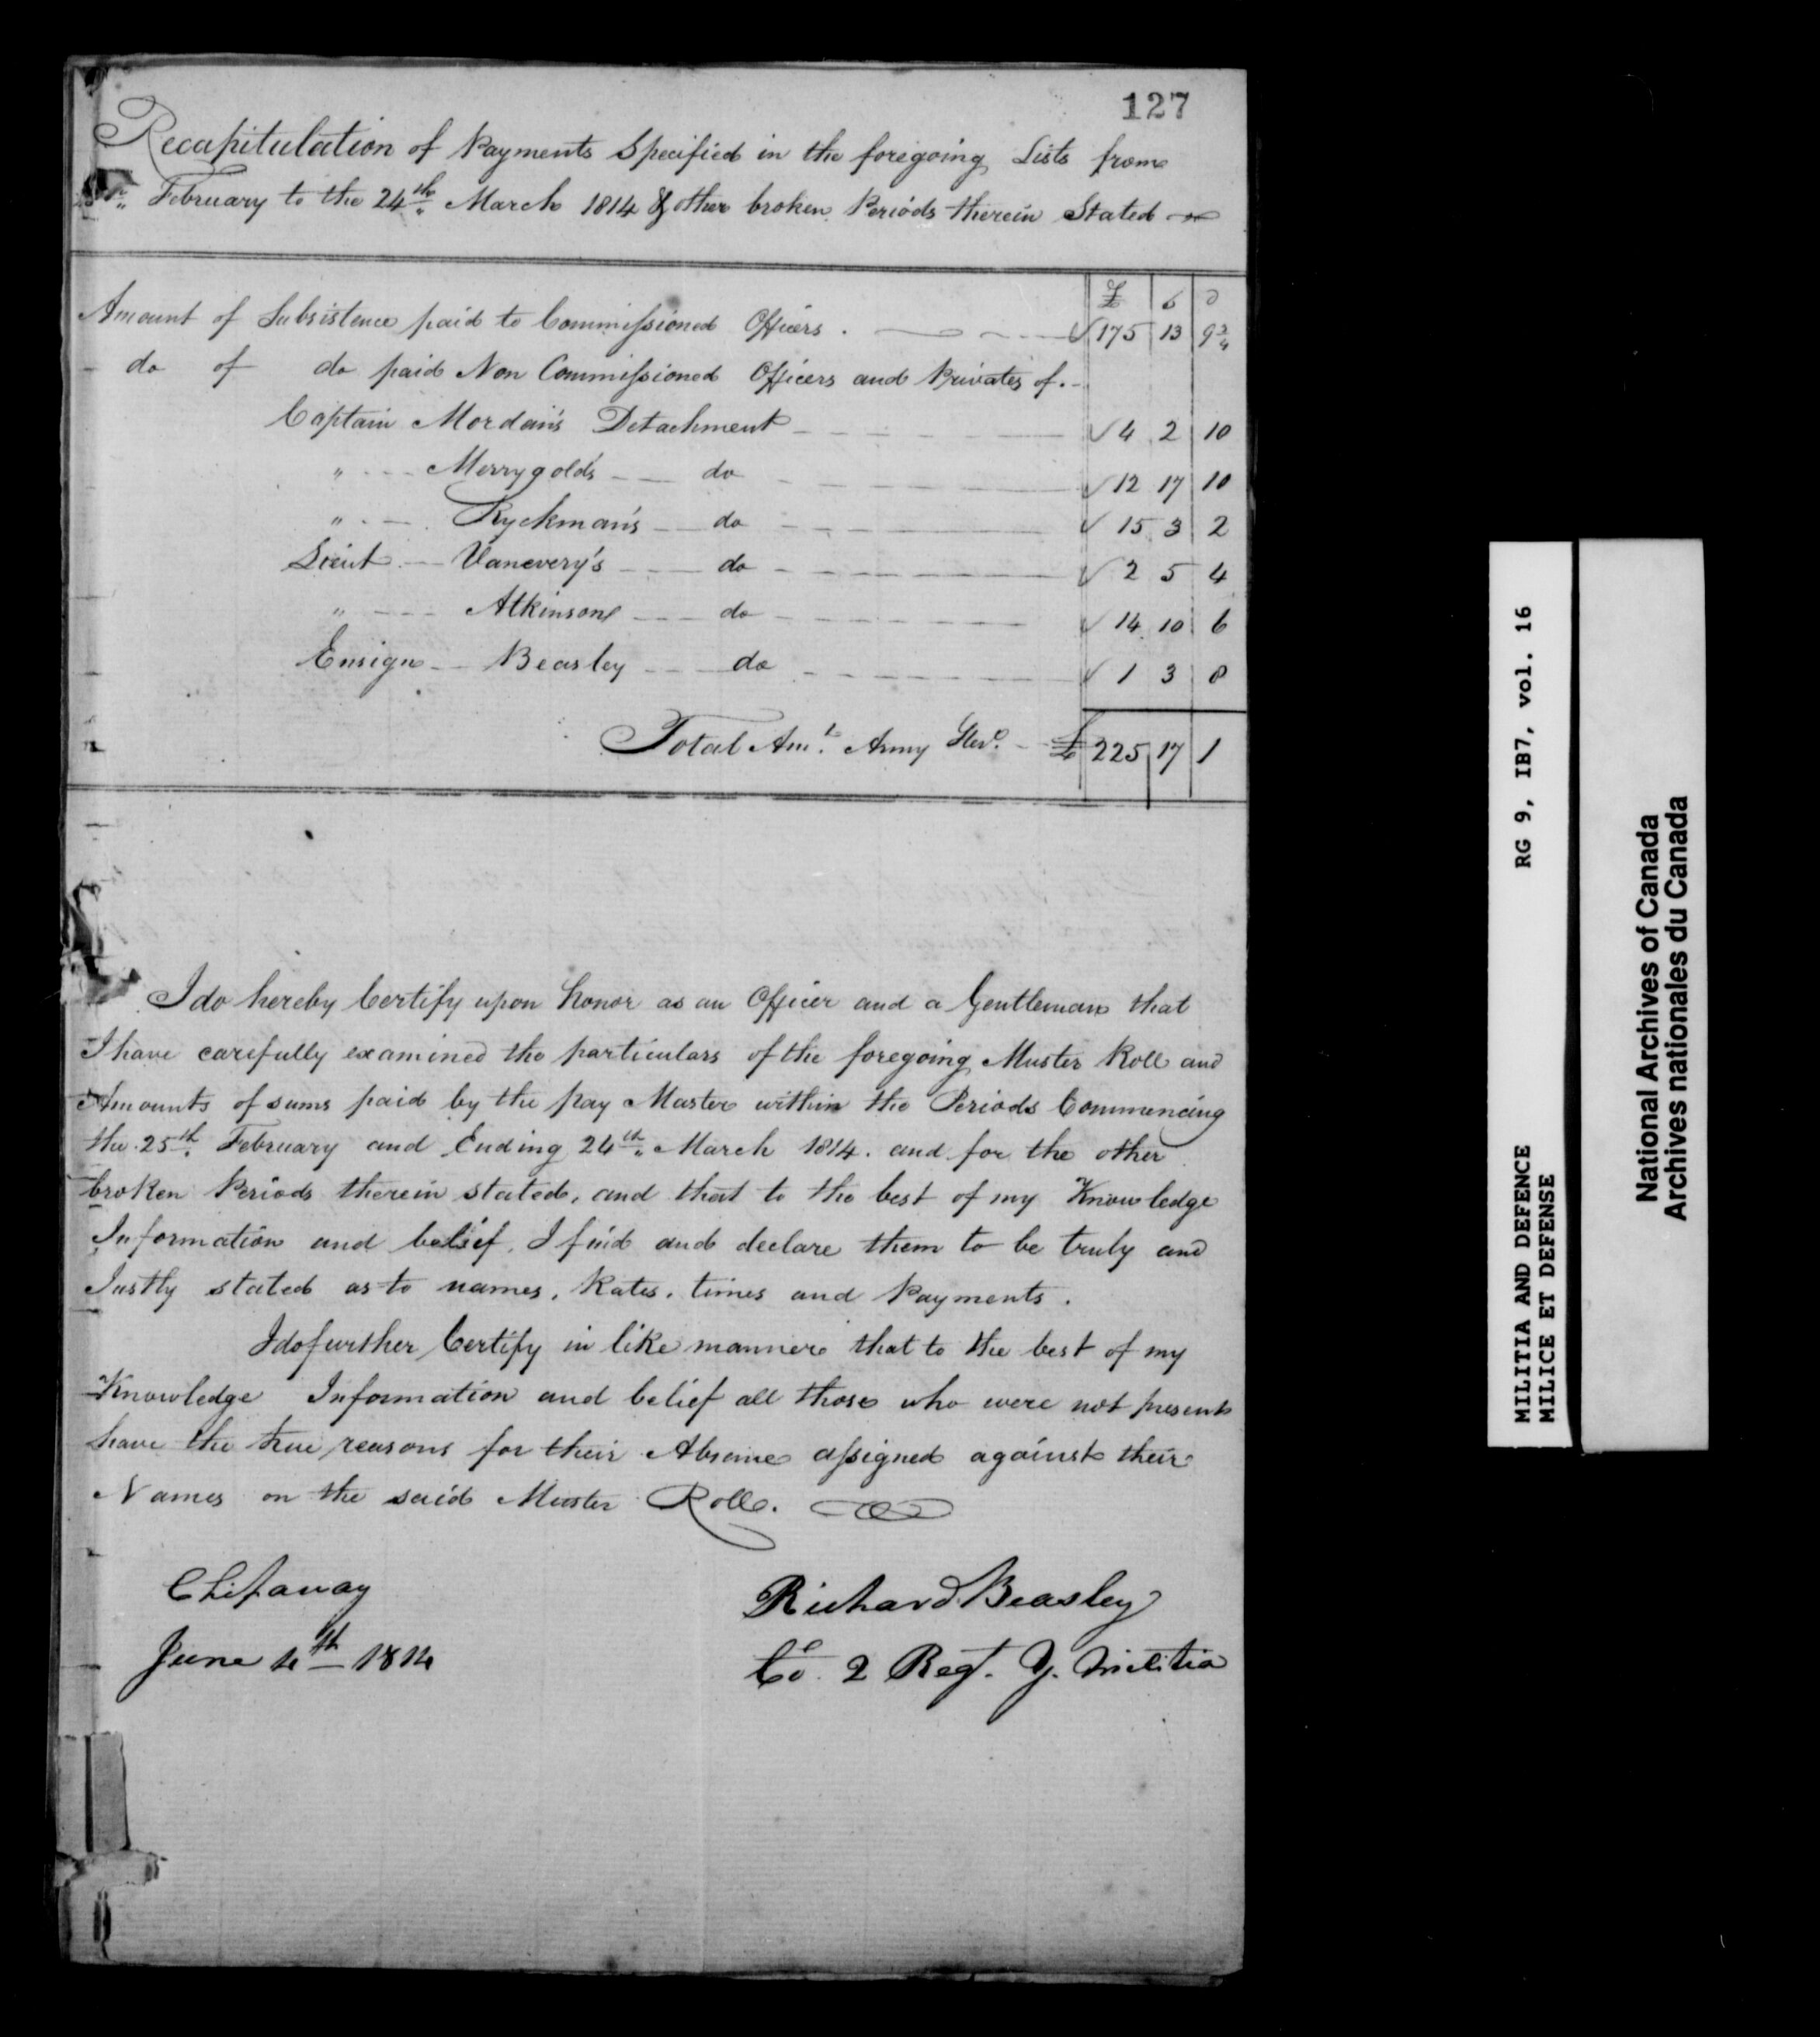 127
Recapitulation of Payments Specified in the foregoing Lists from
February to the 24th March 1814 & other broken Periods therein Stated
£ s d
Amount of Subsistence paid to Commissioned Officers. 175 13 9¾
do of do paid Non Commissioned Officers and Privates of.
Captain Morden's Detachment 4 2 10
" Merrygold's do 12 17 10
" Ryckman's do 15 3 2
Lieut Vanevery's do 2 5 4
" Atkinsons do 14 10 6
Ensign Beasley do 1 3 8
Total Amt. Army Ster. £ 225 17 1
I do hereby Certify upon honor as an Officer and a Gentleman that
I have carefully examined the particulars of the foregoing Muster Roll and
Amounts of sums paid by the pay Master within the Periods Commencing
the 25th February and Ending 24th March 1814. and for the other
broken Periods therein stated, and that to the best of my Knowledge
Information and belief, I find and declare them to be truly and
Justly stated as to names, Rates, times and Payments.
I do further Certify in like manner that to the best of my
Knowledge Information and belief all those who were not present
have the true reasons for their Absence assigned against their
Names on the said Muster Roll.
Chipaway
June 4th 1814
Richard Beasley
Co. 2 Regt. Y. Militia
MILITIA AND DEFENCE RG 9, IB7, vol. 16
MILICE ET DEFENSE
National Archives of Canada
Archives nationales du Canada